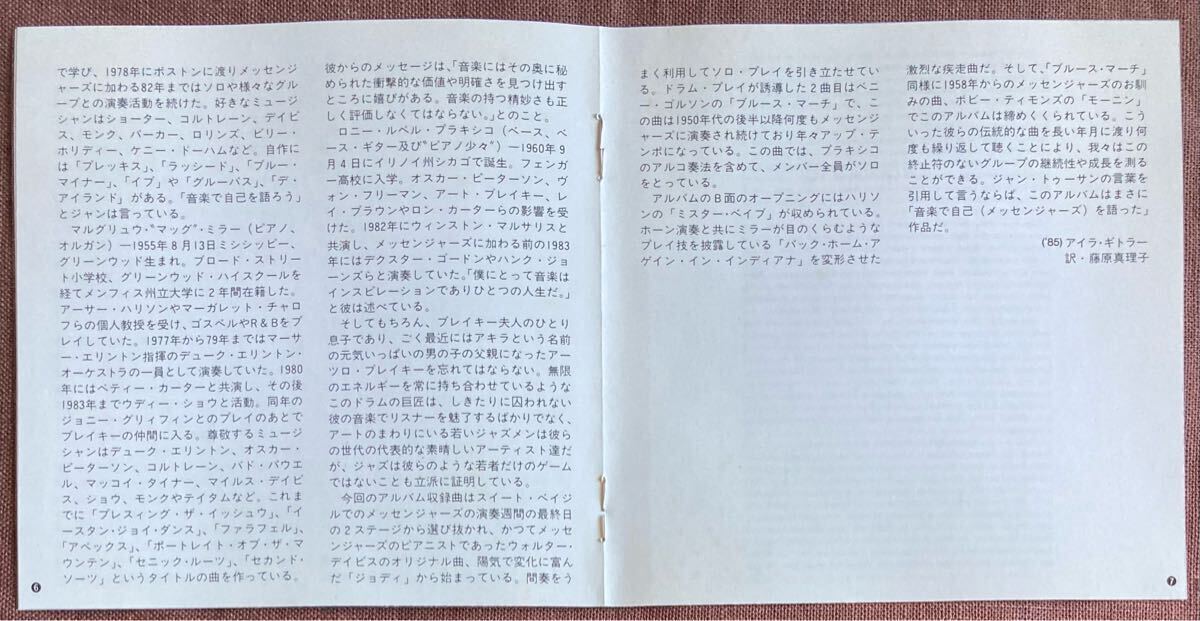 で学び、1978年にボストンに渡りメッセンジ
ャーズに加わる82年まではソロや様々なグル
ープとの演奏活動を続けた。好きなミュージ
シャンはショーター、コルトレーン、デイビ
ス、モンク、パーカー、ロリンズ、ビリー・
ホリディー、ケニー・ドーハムなど。自作に
は「プレッキス」、「ラッシード」、「ブルー・
マイナー」、「イブ」や「グルーバス」、「デ・
アイランド」がある。「音楽で自己を語ろう」
とジャンは言っている。
マルグリュウ・“マッグ”・ミラー（ピアノ、
オルガン）―1955年8月13日ミシシッピー、
グリーンウッド生まれ。ブロード・ストリー
ト小学校、グリーンウッド・ハイスクールを
経てメンフィス州立大学に2年間在籍した。
アーサー・ハリソンやマーガレット・チャロ
フらの個人教授を受け、ゴスペルやR&Bをプ
レイしていた。1977年から79年まではマーサ
ー・エリントン指揮のデューク・エリントン・
オーケストラの一員として演奏していた。1980
年にはベティー・カーターと共演し、その後
1983年までウディー・ショウと活動。同年の
ジョニー・グリィフィンとのプレイのあとで
ブレイキーの仲間に入る。尊敬するミュージ
シャンはデューク・エリントン、オスカー・
ピーターソン、コルトレーン、バド・パウエ
ル、マッコイ・タイナー、マイルス・デイビ
ス、ショウ、モンクやテイタムなど。これま
でに「ブレスィング・ザ・イッシュウ」、「イ
ースタン・ジョイ・ダンス」、「ファラフェル」、
「アペックス」、「ポートレイト・オブ・ザ・マ
ウンテン」、「セニック・ルーツ」、「セカンド・
ソーツ」というタイトルの曲を作っている。
❻
彼からのメッセージは、「音楽にはその奥に秘
められた衝撃的な価値や明確さを見つけ出す
ところに嬉びがある。音楽の持つ精妙さも正
しく評価しなくてはならない。」とのこと。
ロニー・ルベル・プラキシコ（ベース、ベ
ース・ギター及び“ピアノ少々”）―1960年9
月4日にイリノイ州シカゴで誕生。フェンガ
ー高校に入学。オスカー・ピーターソン、ヴ
ォン・フリーマン、アート・ブレイキー、レ
イ・ブラウンやロン・カーターらの影響を受
けた。1982年にウィンストン・マルサリスと
共演し、メッセンジャーズに加わる前の1983
年にはデクスター・ゴードンやハンク・ジョ
ーンズらと演奏していた。「僕にとって音楽は
インスピレーションでありひとつの人生だ。」
と彼は述べている。
そしてもちろん、ブレイキー夫人のひとり
息子であり、ごく最近にはアキラという名前
の元気いっぱいの男の子の父親になったアー
ツロ・ブレイキーを忘れてはならない。無限
のエネルギーを常に持ち合わせているような
このドラムの巨匠は、しきたりに囚われない
彼の音楽でリスナーを魅了するばかりでなく、
アートのまわりにいる若いジャズメンは彼ら
の世代の代表的な素晴しいアーティスト達だ
が、ジャズは彼らのような若者だけのゲーム
ではないことも立派に証明している。
今回のアルバム収録曲はスイート・ベイジ
ルでのメッセンジャーズの演奏週間の最終日
の2ステージから選び抜かれ、かつてメッセ
ンジャーズのピアニストであったウォルター・
デイビスのオリジナル曲、陽気で変化に富ん
だ「ジョディ」から始まっている。間奏をう
まく利用してソロ・プレイを引き立たせてい
る。ドラム・プレイが誘導した2曲目はベニ
ー・ゴルソンの「ブルース・マーチ」で、こ
の曲は1950年代の後半以降何度もメッセンジ
ャーズに演奏され続けており年々アップ・テ
ンポになっている。この曲では、プラキシコ
のアルコ奏法を含めて、メンバー全員がソロ
をとっている。
アルバムのB面のオープニングにはハリソ
ンの「ミスター・ベイブ」が収められている。
ホーン演奏と共にミラーが目のくらむような
プレイ技を披露している「バック・ホーム・ア
ゲイン・イン・インディアナ」を変形させた
激烈な疾走曲だ。そして、「ブルース・マーチ」
同様に1958年からのメッセンジャーズのお馴
みの曲、ボビー・ティモンズの「モーニン」
でこのアルバムは締めくくられている。こう
いった彼らの伝統的な曲を長い年月に渡り何
度も繰り返して聴くことにより、我々はこの
終止符のないグループの継続性や成長を測る
ことができる。ジャン・トゥーサンの言葉を
引用して言うならば、このアルバムはまさに
「音楽で自己（メッセンジャーズ）を語った」
作品だ。
（'85）アイラ・ギトラー
訳・藤原真理子
❼